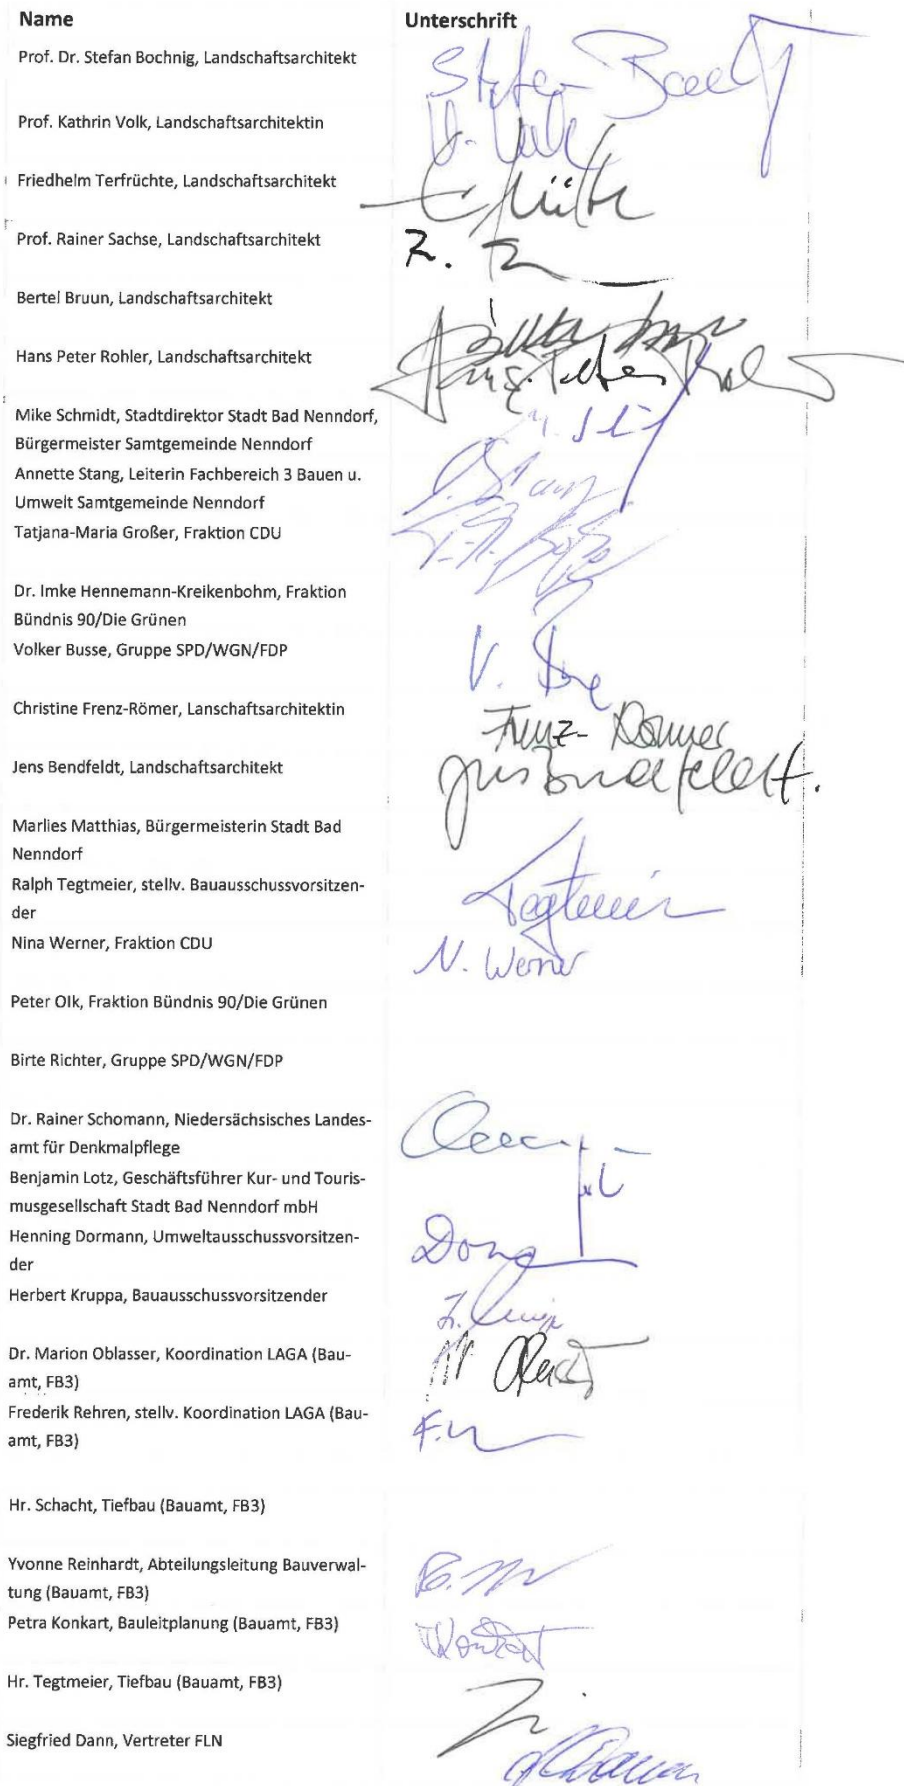 Name Unterschrift
Prof. Dr. Stefan Bochnig, Landschaftsarchitekt Stefan
Prof. Kathrin Volk, Landschaftsarchitektin
Friedhelm Terfrüchte, Landschaftsarchitekt
Prof. Rainer Sachse, Landschaftsarchitekt R.
Bertel Bruun, Landschaftsarchitekt
Hans Peter Rohler, Landschaftsarchitekt Hans-Peter
Mike Schmidt, Stadtdirektor Stadt Bad Nenndorf,
Bürgermeister Samtgemeinde Nenndorf
Annette Stang, Leiterin Fachbereich 3 Bauen u.
Umwelt Samtgemeinde Nenndorf
Tatjana-Maria Großer, Fraktion CDU
Dr. Imke Hennemann-Kreikenbohm, Fraktion
Bündnis 90/Die Grünen
Volker Busse, Gruppe SPD/WGN/FDP V.
Christine Frenz-Römer, Lanschaftsarchitektin Frenz-Römer
Jens Bendfeldt, Landschaftsarchitekt Jens Bendfeldt.
Marlies Matthias, Bürgermeisterin Stadt Bad
Nenndorf
Ralph Tegtmeier, stellv. Bauausschussvorsitzen-
der Tegtmeier
Nina Werner, Fraktion CDU N. Werner
Peter Olk, Fraktion Bündnis 90/Die Grünen
Birte Richter, Gruppe SPD/WGN/FDP
Dr. Rainer Schomann, Niedersächsisches Landes-
amt für Denkmalpflege
Benjamin Lotz, Geschäftsführer Kur- und Touris-
musgesellschaft Stadt Bad Nenndorf mbH
Henning Dormann, Umweltausschussvorsitzen-
der
Herbert Kruppa, Bauausschussvorsitzender
Dr. Marion Oblasser, Koordination LAGA (Bau-
amt, FB3)
Frederik Rehren, stellv. Koordination LAGA (Bau-
amt, FB3)
Hr. Schacht, Tiefbau (Bauamt, FB3)
Yvonne Reinhardt, Abteilungsleitung Bauverwal-
tung (Bauamt, FB3)
Petra Konkart, Bauleitplanung (Bauamt, FB3) Konkart
Hr. Tegtmeier, Tiefbau (Bauamt, FB3)
Siegfried Dann, Vertreter FLN